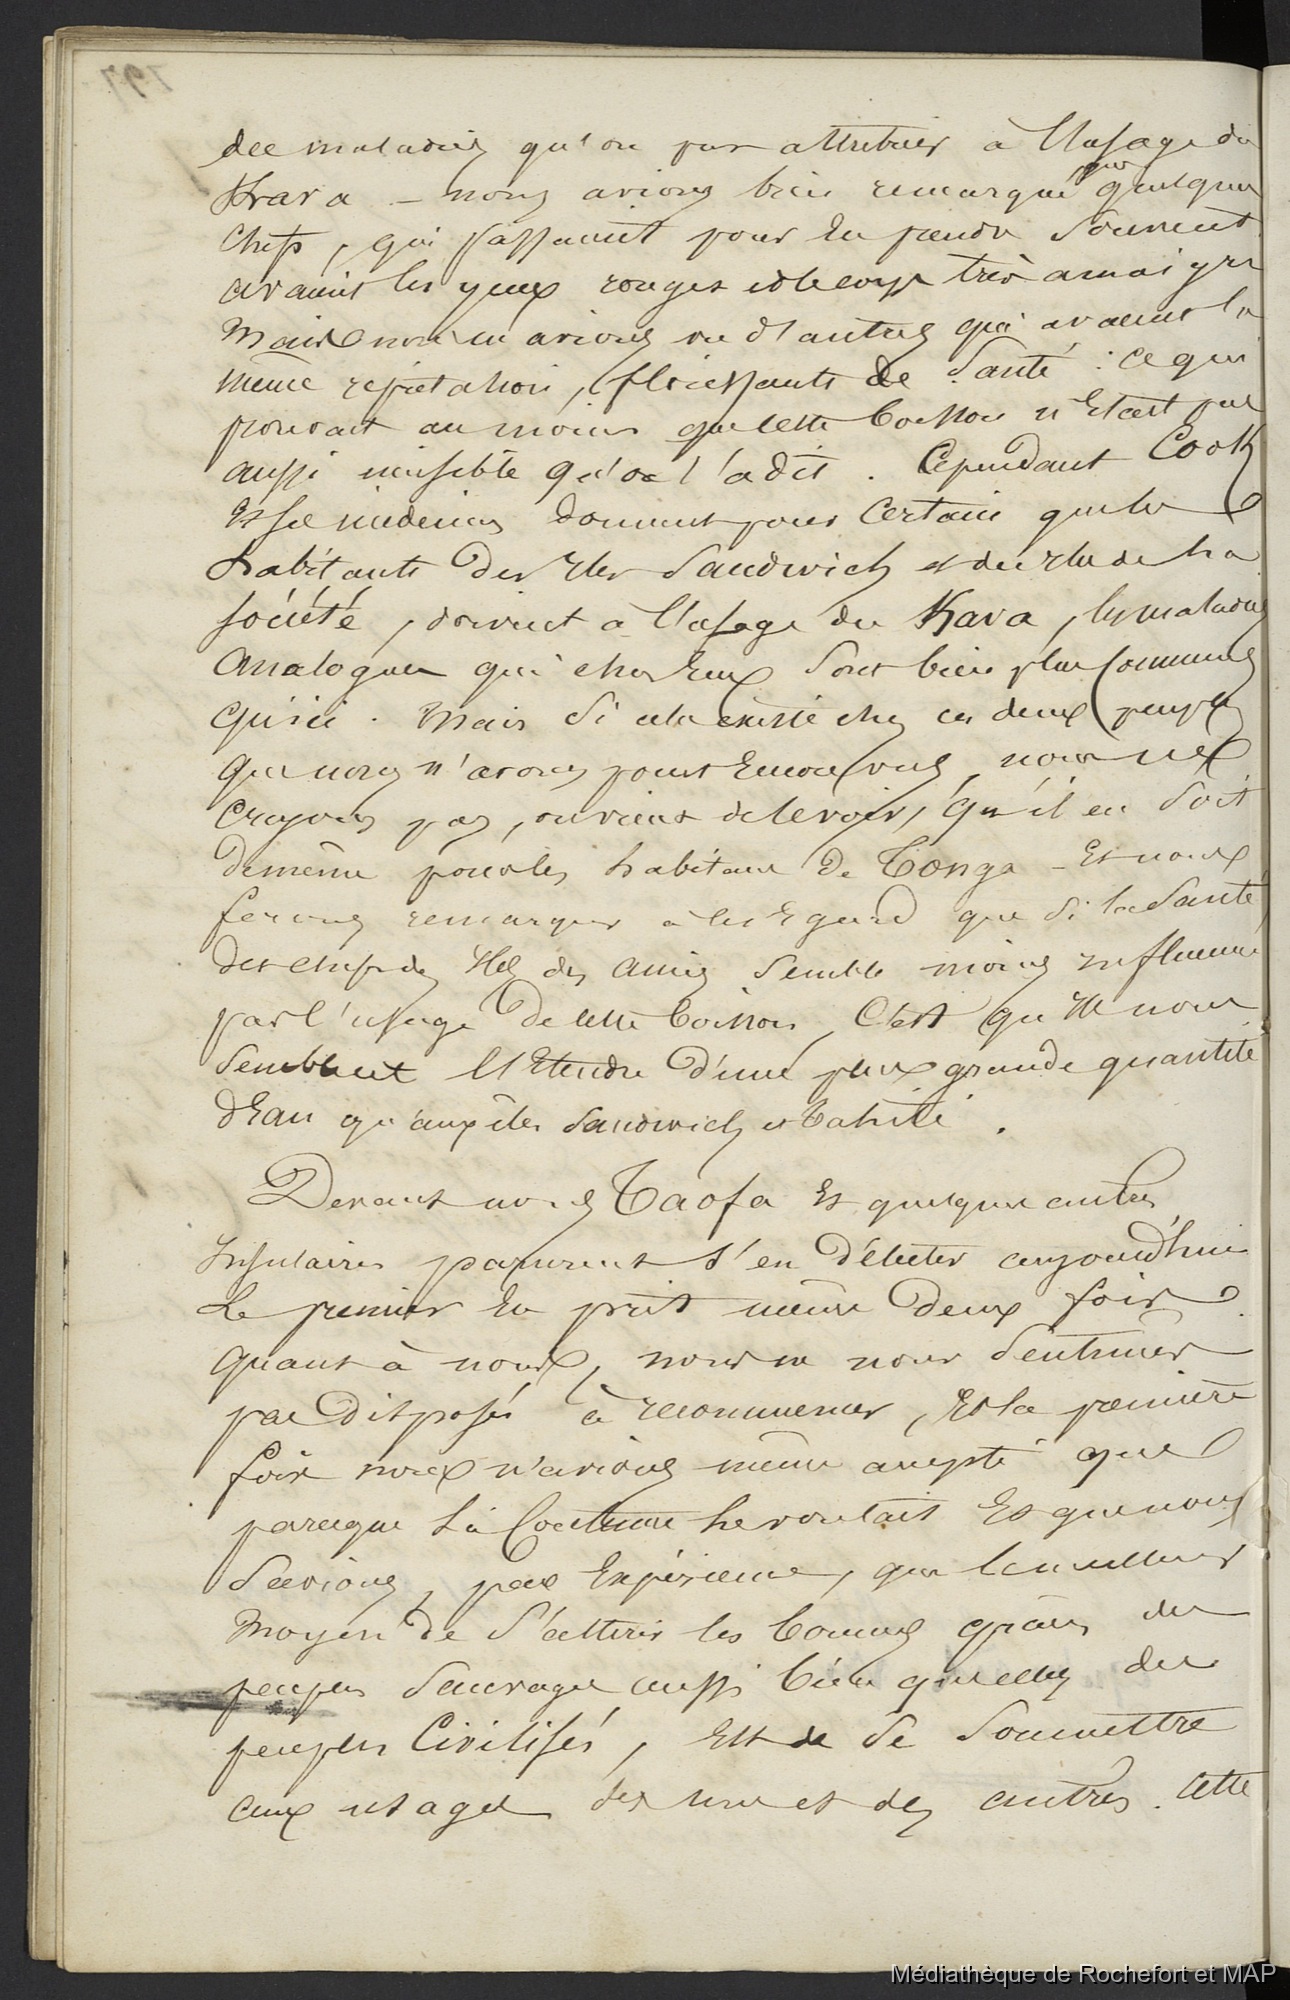 des maladies qu'on put attribuer à l'usage du
Kava – nous avions bien remarqué que quelques
chefs, qui passaient pour en prendre souvent
avaient les yeux rouges et le corps très amaigri
mais nous en avions vu d'autres qui avaient la
même réputation, florissants de santé : ce qui
prouvait au moins que cette boisson n'était pas
aussi nuisible qu'on l'a dit. Cependant Cook
et ses médecins donnent pour certain que les
habitants des Iles Sandwich et des Iles de la
société, doivent à l'usage du Kava, les maladies
analogues qui chez eux sont bien plus communes
qu'ici. Mais si cela existe chez ces deux peuples
que nous n'avons point encore vus, nous ne
croyons pas, on vient de le voir, qu'il en soit
de même pour les habitans de Tonga – Et nous
ferons remarquer à cet égard que si la santé
des chefs des Iles des Amis semble moins influencée
par l'usage de cette boisson, C'est qu'ils nous
semblent l'Etendre d'une plus grande quantité
d'Eau qu'aux îles Sandwich et Tahiti.
Devant nous Taofa Et quelques autres
Insulaires parurent s'en délecter aujourd'hui
Le premier en prit même deux fois
Quant à nous, nous ne nous sentimes
pas disposés à recommencer, Et la première
fois nous n'avions même accepté que
parceque la Coutume le voulait Et que nous
savions, par Expérience, que le meilleur
moyen de s'attirer les bonnes grâces des
peuples sauvages aussi bien que celles des
peuples Civilisés, Est de se soumettre
aux usages des uns et des autres. Cette
Médiathèque de Rochefort et MAP